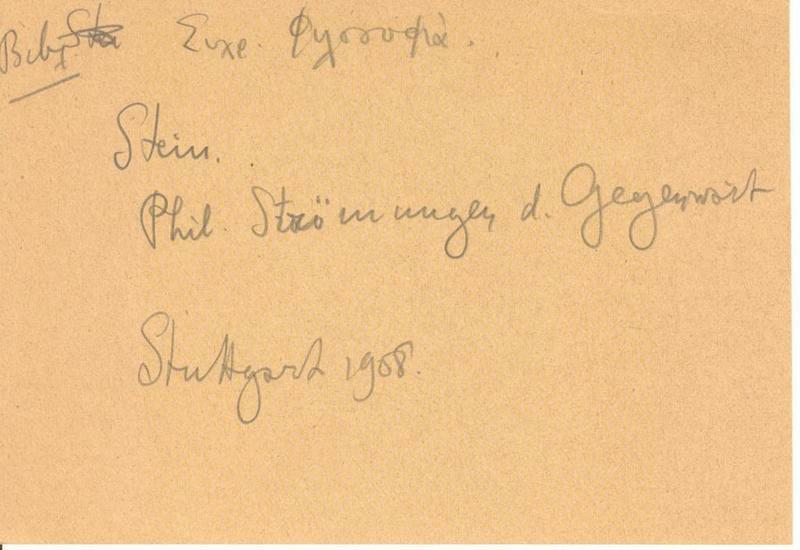 Συχρ. Φιλοσοφία.
Stein.
Phil. Strömungen d. Gegenwart
Stuttgart 1908.